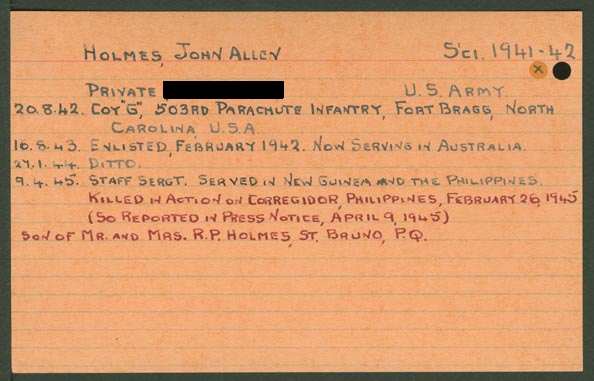 HOLMES, JOHN ALLEN Sci. 1941-42
PRIVATE U.S. ARMY.
20.8.42. COY "G", 503RD PARACHUTE INFANTRY, FORT BRAGG, NORTH
CAROLINA, U.S.A.
16.8.43. ENLISTED, FEBRUARY 1942. NOW SERVING IN AUSTRALIA.
27.1.44. DITTO.
9.4.45. STAFF SERGT. SERVED IN NEW GUINEA AND THE PHILIPPINES.
KILLED IN ACTION ON CORREGIDOR, PHILIPPINES, FEBRUARY 26, 1945
(SO REPORTED IN PRESS NOTICE, APRIL 9, 1945)
SON OF MR. AND MRS. R.P. HOLMES, ST. BRUNO, P.Q.